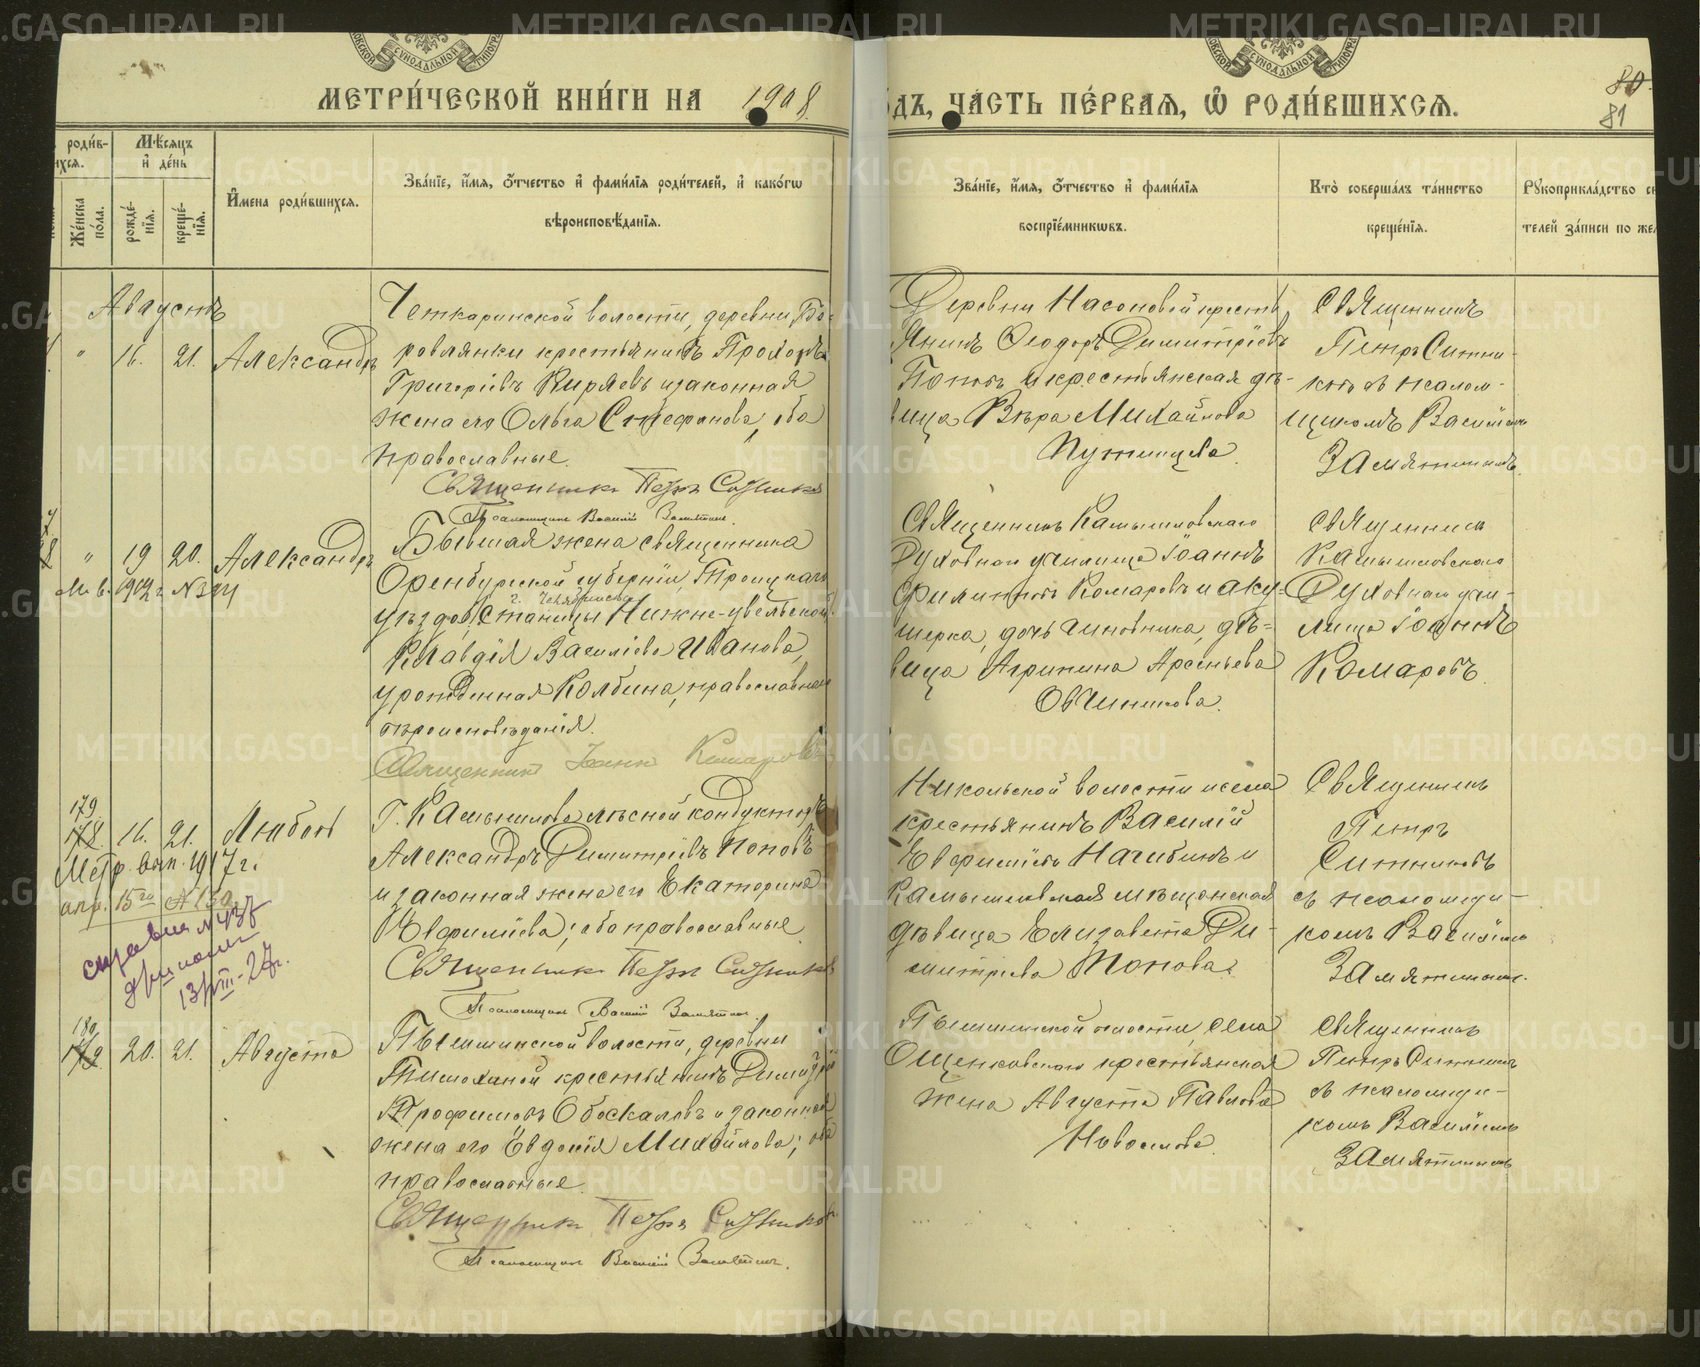 МЕТРИ́ЧЕСКОЙ КНИ́ГИ НА 1908
ДЪ, ЧА́СТЬ ПЕ́РВАЯ, Ѡ҆ РОДИ́ВШИХСЯ.
80.
81
роди́в-
ихся.
Мѣ́сяцъ
и҆ де́нь
Же́нска
по́ла.
рожде́-
нїя.
креще́-
нїя.
И҆́мена роди́вшихся.
Зва́нїе, и҆́мя, ѻ҆́тчество и҆ фами́лїя роди́телей, и҆ како́гѡ
вѣроисповѣ́данїя.
Зва́нїе, и҆́мя, ѻ҆́тчество и҆ фами́лїя
воспрїе́мникѡвъ.
Кто̀ соверша́лъ та́инство
креще́нїя.
Рꙋкоприкла́дство св
телей за́писи по же
Августъ
" 16. 21. Александръ
Четкаринской волости, деревни Бо-
ровлянки крестьянинъ Прохоръ
Григоріевъ Киряевъ и законная
жена его Ольга Стефанова, оба
православные.
Священникъ Петръ Ситниковъ
Псаломщикъ Василій Замятинъ.
Деревни Насоновой кресть
янинъ Ѳеодоръ Димитріевъ
Поповъ и крестьянская дѣ-
вица Вѣра Михайлова
Путинцева
Священникъ
Петръ Ситни-
ковъ съ псалом-
щикомъ Василіемъ
Замятинымъ.
" 19 20. Александръ
М. в. 1912 г. №
Бывшая жена священника
Оренбургской губерніи, Троицкаго
г. Челябинска
уѣзда, станицы Нижне-Увельской
Клавдія Василіева Иванова,
урожденная Колбина, православнаго
вѣроисповѣданія.
Священникъ Іоаннъ Комаровъ
Священникъ Камышловскаго
Духовнаго училища Іоаннъ
Филипповъ Комаровъ и аку-
шерка, дочь чиновника, дѣ-
вица Агрипина Арсеньева
Овчинникова.
Священникъ
Камышловскаго
Духовнаго учи-
лища Іоаннъ
Комаровъ.
179.
178. 16. 21. Любовь
Метр. вып. 1917 г.
апр. 15 № 150
справка № 437
13/VIII-27г.
Г. Камышлова лѣсной кондукторъ
Александръ Димитріевъ Поповъ
и законная жена его Екатерина
Евфиміева; оба православные.
Священникъ Петръ Ситниковъ
Псаломщикъ Василій Замятинъ.
Никольской волости и села
крестьянинъ Василій
Евфиміевъ Нагибинъ и
Камышловская мѣщанская
дѣвица Елизавета Ди-
митріева Попова.
Священникъ
Петръ
Ситниковъ
съ псаломщи-
комъ Василіемъ
Замятинымъ.
180
179. 20. 21. Августа
Пышминской волости, деревни
Тимохиной крестьянинъ Димитрій
Трофимовъ Обоскаловъ и законная
жена его Евдокія Михайлова; оба
православные.
Священникъ Петръ Ситниковъ.
Псаломщикъ Василій Замятинъ.
Пышминской волости, села
Ощепковскаго крестьянская
жена Августа Павлова
Новоселова.
Священникъ
Петръ Ситниковъ
съ псаломщи-
комъ Василіемъ
Замятинымъ
METRIKI.GASO-URAL.RU